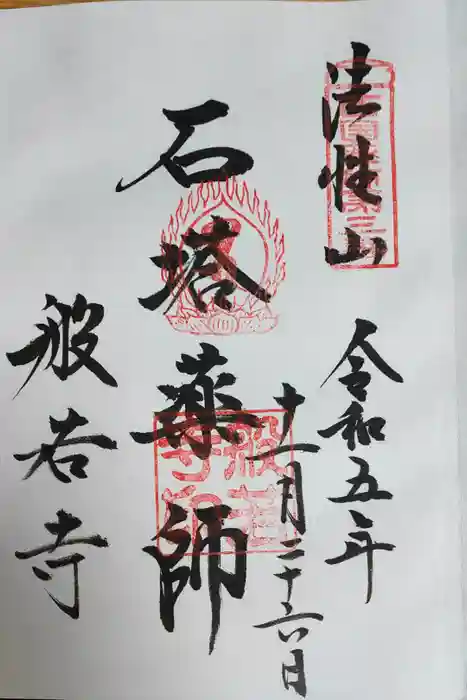 法性山
令和五年
十一月二十六日
石塔薬師
般若寺